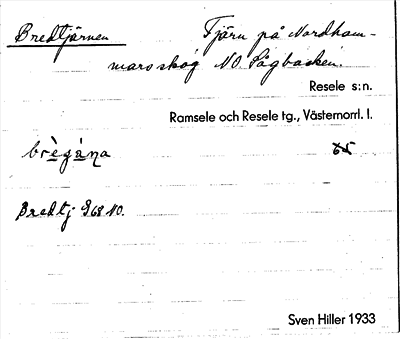 Bredtjärnen Tjärn på Nordham-
mars skog NO Sågbacken.
Resele s:n.
Ramsele och Resele tg., Västernorrl. l.
brègána
Bredtj G68 NO.
Sven Hiller 1933